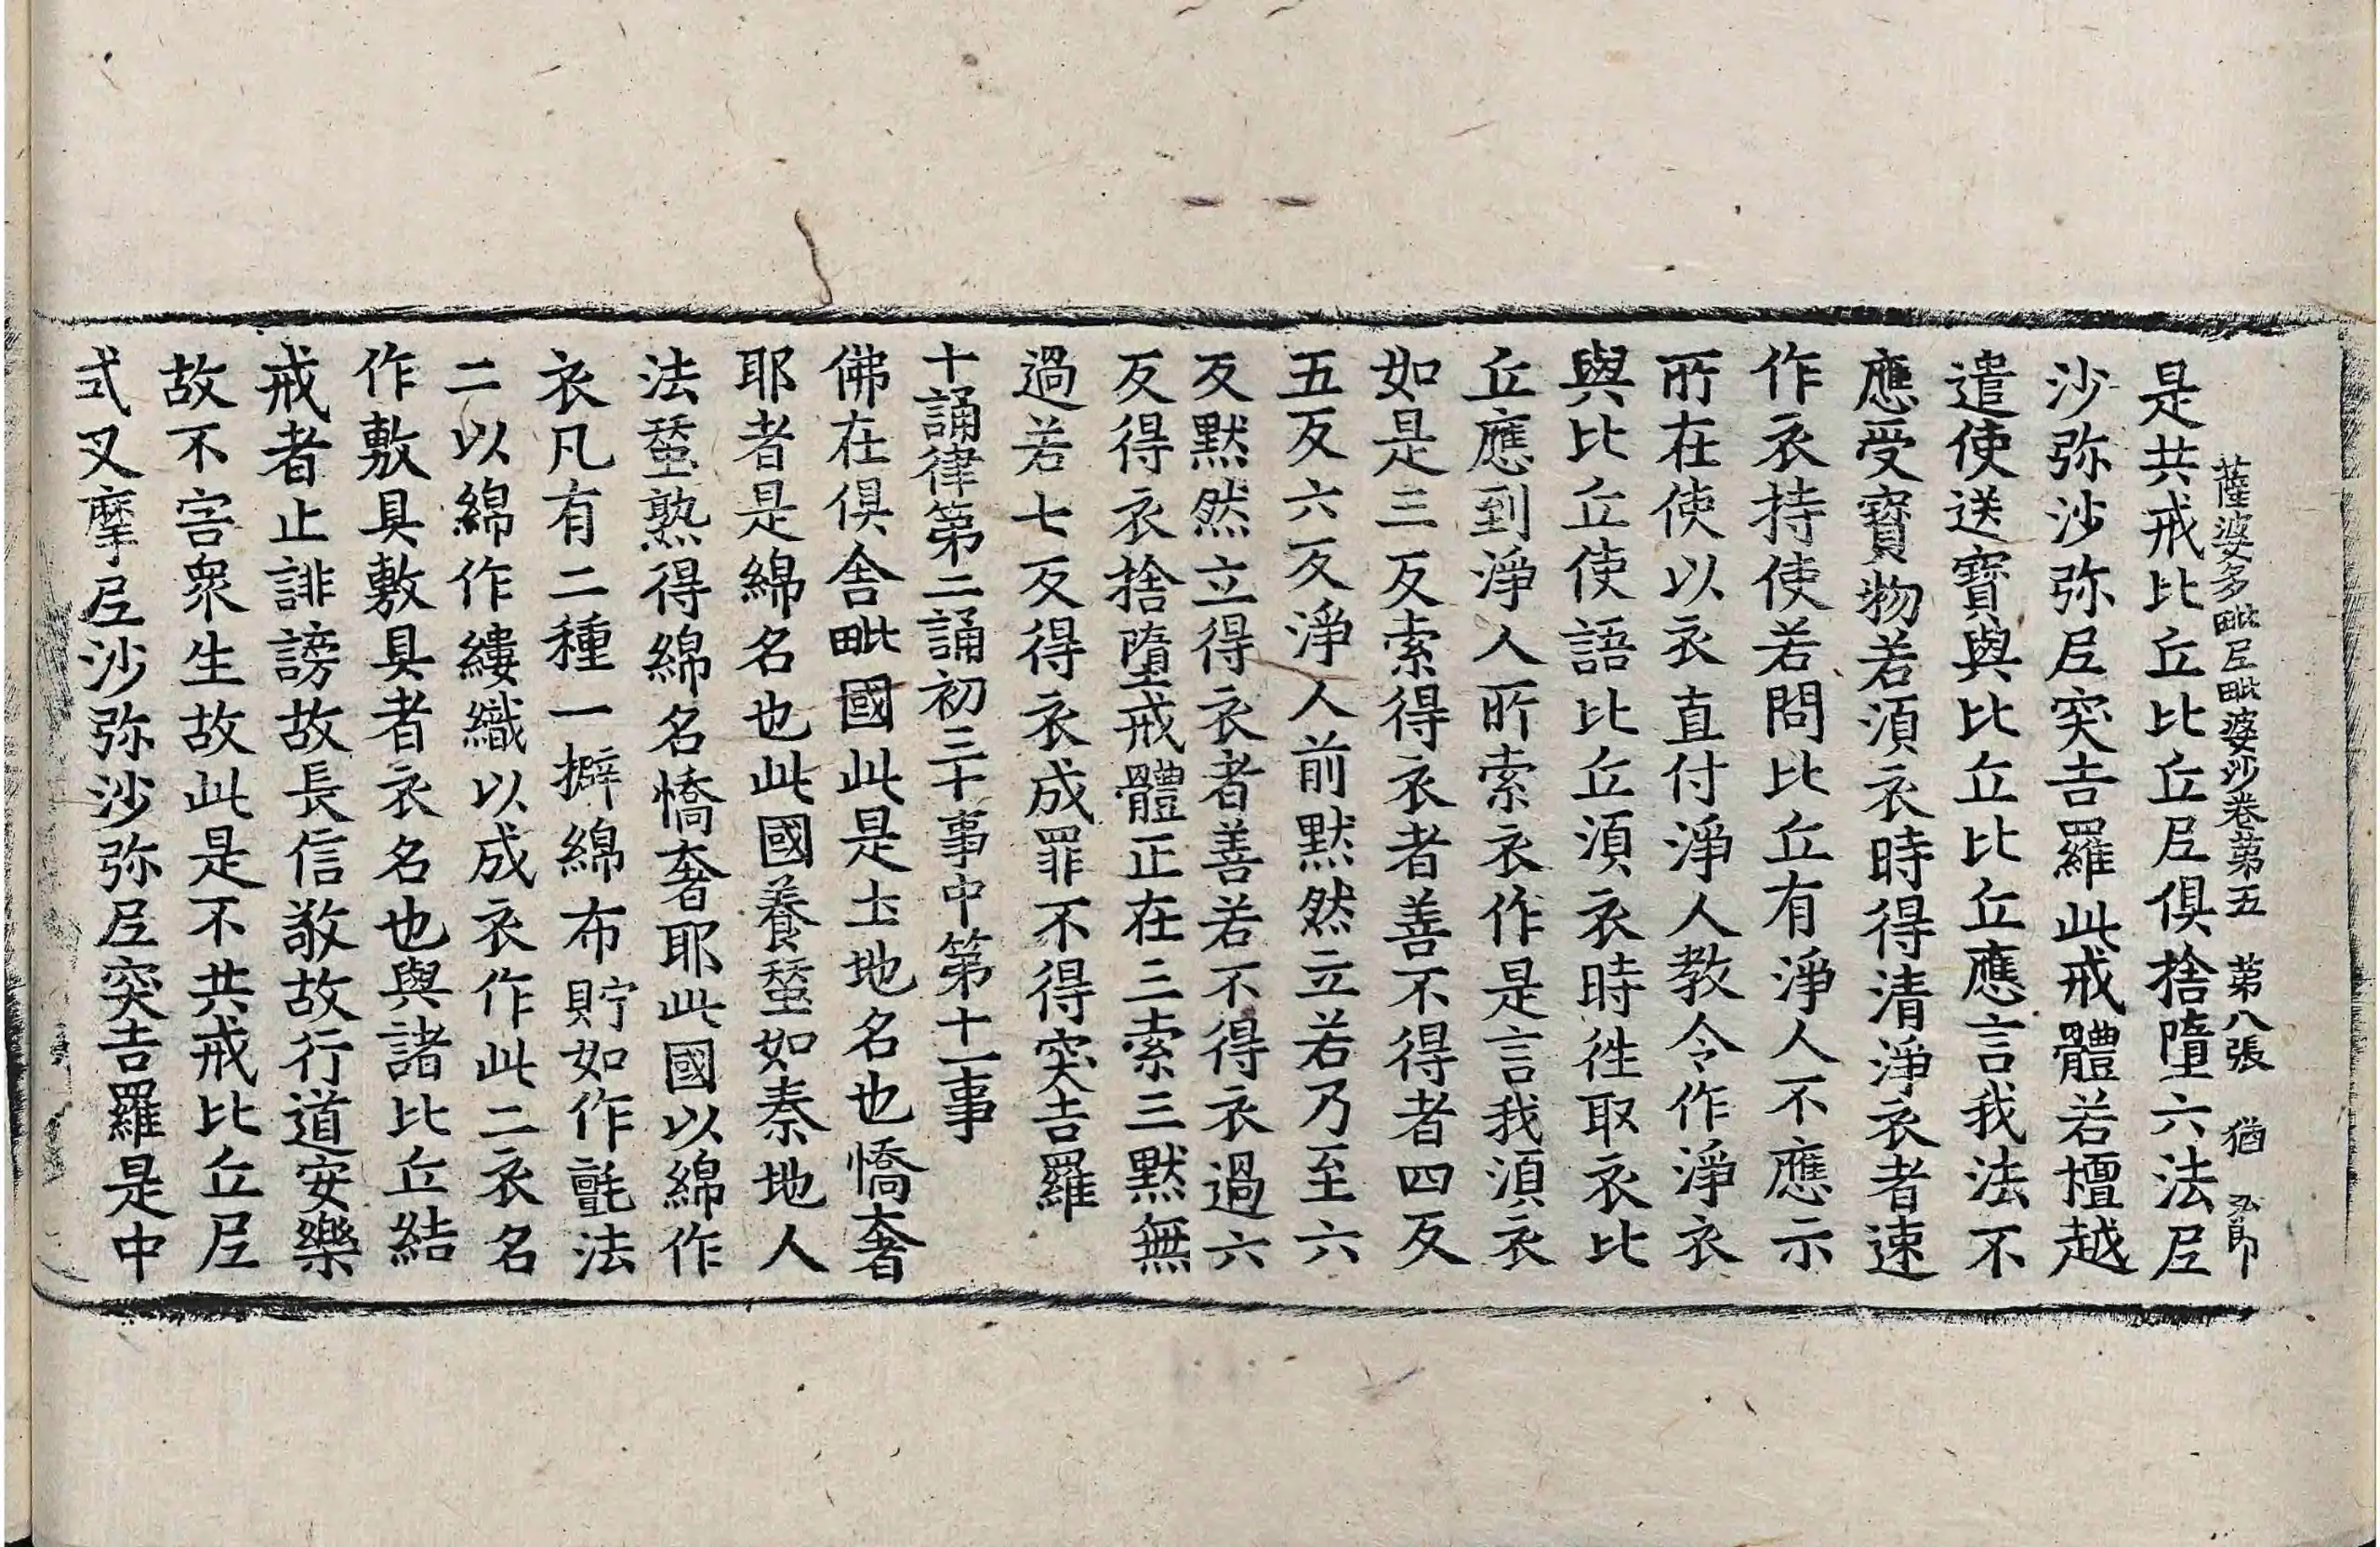 薩婆多毗尼毗婆沙卷苐五 苐八張 猶
是共戒比丘比丘尼俱捨墮六法尼
沙弥沙弥尼突吉羅此戒體若檀越
遣使送寶與比丘比丘應言我法不
應受寶物若湏衣時得清淨衣者速
作衣持使若問比丘有淨人不應示
所在使以衣直付淨人教令作淨衣
與比丘使語比丘湏衣時徃取衣比
丘應到淨人所索衣作是言我湏衣
如是三反索得衣者善不得者四反
五反六反淨人前默然立若乃至六
反默然立得衣者善若不得衣過六
反得衣捨墮戒體正在三索三默無
過若七反得衣成罪不得突吉羅
十誦律第二誦初三十事中第十一事
佛在俱舍毗國此是土地名也憍奢
耶者是綿名也此國養蚕如秦地人
法蚕熟得綿名憍奢耶此國以綿作
衣凡有二種一擗綿布貯如作氈法
二以綿作縷織以成衣作此二衣名
作敷具敷具者衣名也與諸比丘結
戒者止誹謗故長信敬故行道安樂
故不害衆生故此是不共戒比丘尼
式叉摩尼沙弥沙弥尼突吉羅是中